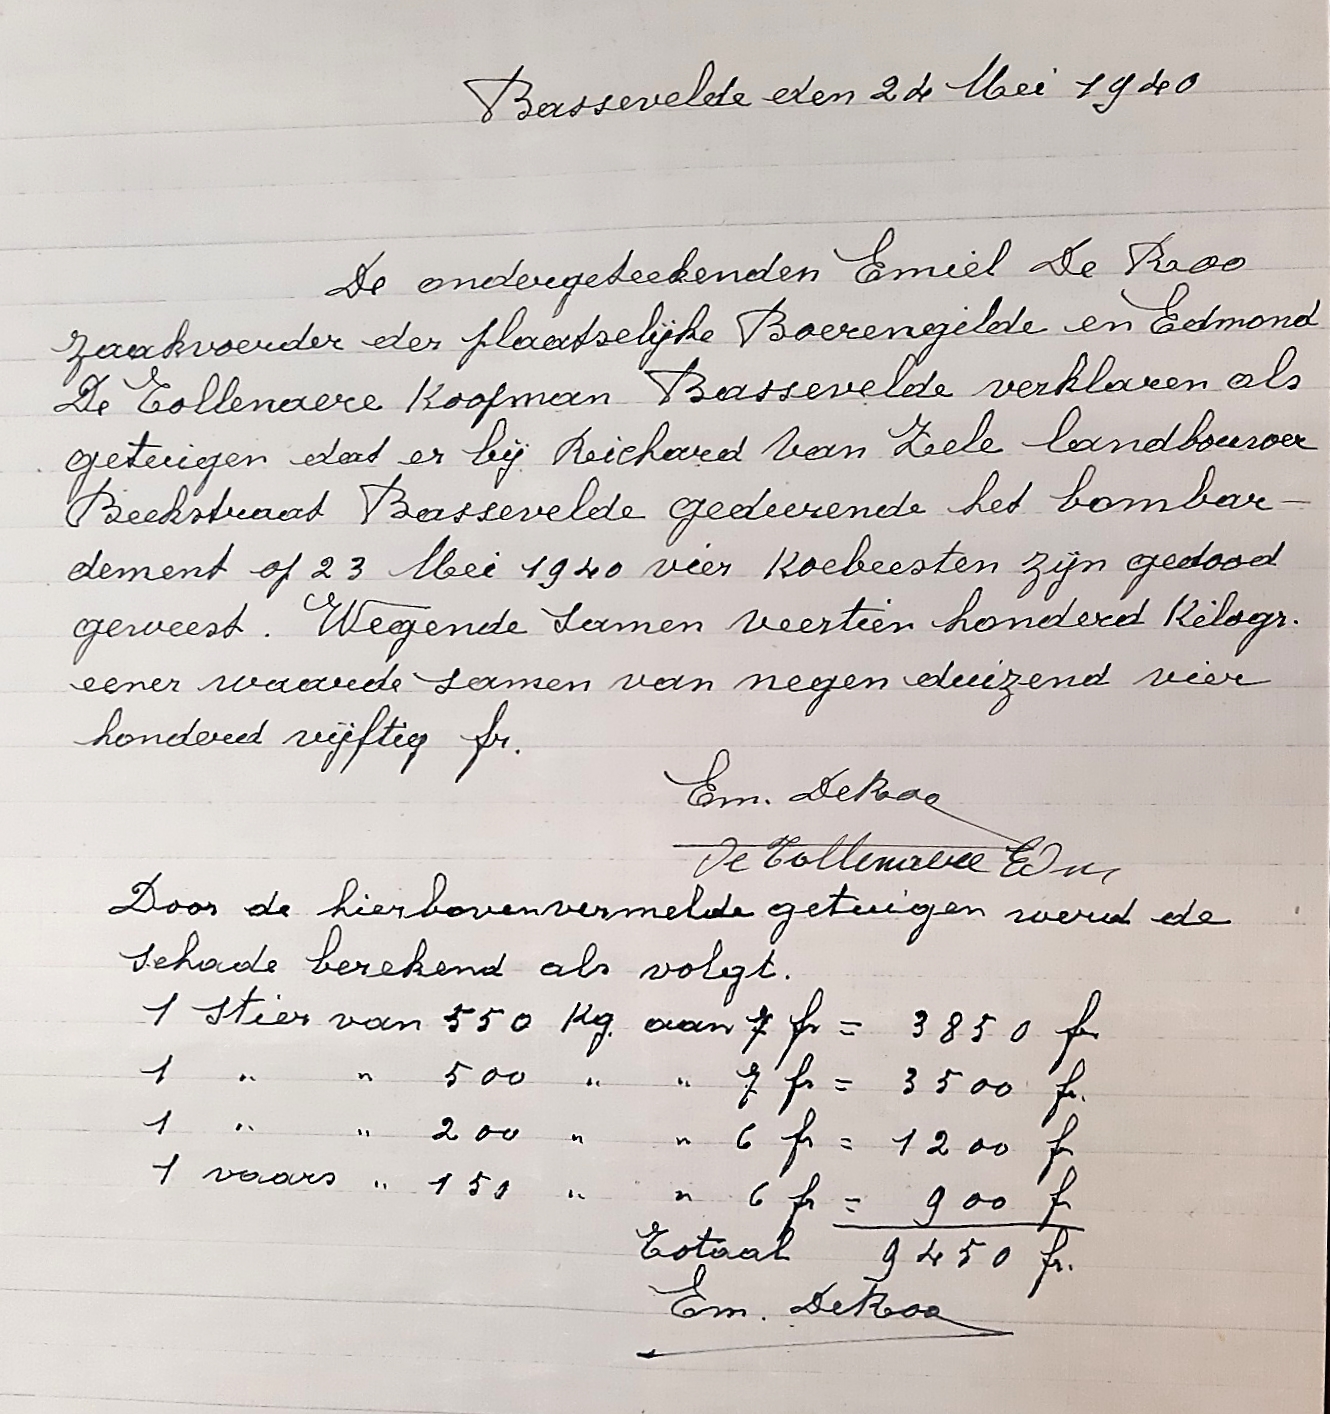 Bassevelde den 24 Mei 1940
De ondergeteekenden Emiel De Roo
zaakvoerder der plaatselijke Boerengilde en Edmond
De Tollenaere Koopman Bassevelde verklaren als
getuigen dat er bij Richard Van Zele landbouwer
Beekstraat Bassevelde gedurende het bombar-
dement op 23 Mei 1940 vier Koebeesten zijn gedood
geweest. Wegende samen veertien honderd Kilogr.
eener waarde samen van negen duizend vier
honderd vijftig fr.
Em. DeRoo
De Tollenaere Edm
Door de hierbovenvermelde getuigen werd de
schade berekend als volgt.
1 Stier van 550 Kg. aan 7 fr = 3850 fr
1 " " 500 " " 7 fr = 3500 fr.
1 " " 200 " " 6 fr = 1200 fr
1 vaars " 150 " " 6 fr = 900 fr
Totaal 9450 fr.
Em. DeRoo